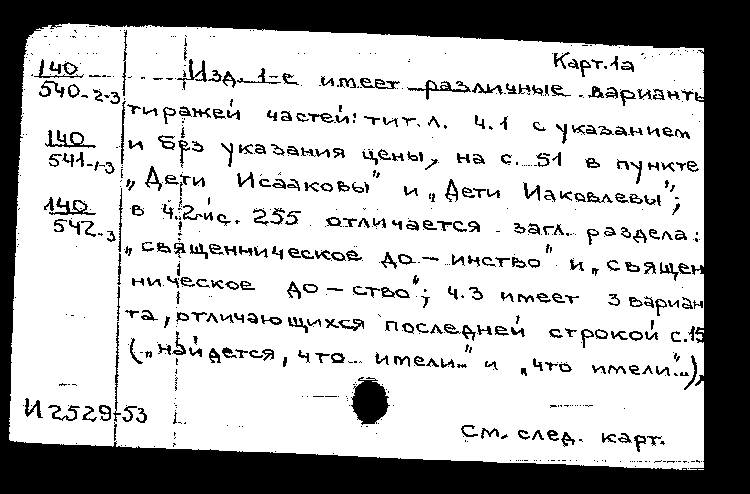 Карт. 1а
140
540-2-3
Изд. 1-е имеет различные варианты
тиражей частей: тит. л. Ч.1 с указанием
140
541-1-3
и без указания цены, на с. 51 в пункте
„Дети Исааковы" и „Дети Иаковлевы";
140
542-3
в Ч.2 с. 255 отличается загл. раздела:
„священническое до-инство" и „священ
ническое до-ство"; Ч.3 имеет 3 вариан
та, отличающихся последней строкой с. 15
(„найдется, что имели..." и „что имели..."),
И 2529-53
См. след. карт.